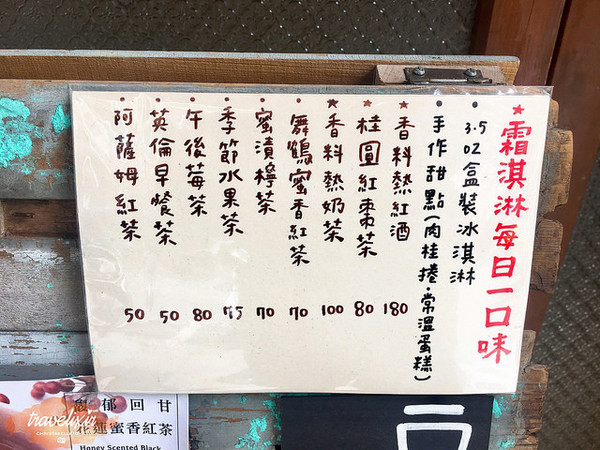 ★霜淇淋每日一口味
•3.5oz盒裝冰淇淋
•手作甜點(肉桂捲、常溫蛋糕)
★香料熱紅酒 180
★桂圓紅棗茶 80
★香料熱奶茶 100
•舞鶴蜜香紅茶 70
•蜜漬檸茶 70
•季節水果茶 75
•午後莓茶 80
•英倫早餐茶 50
•阿薩姆紅茶 50
馥郁回甘
花蓮蜜香紅茶
Honey Scented Black
travelixir